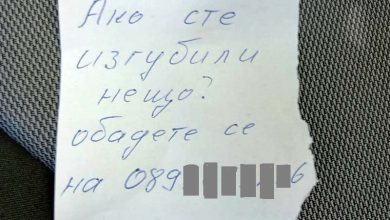 Ако сте
изгубили
нещо?
обадете се
на 089 6